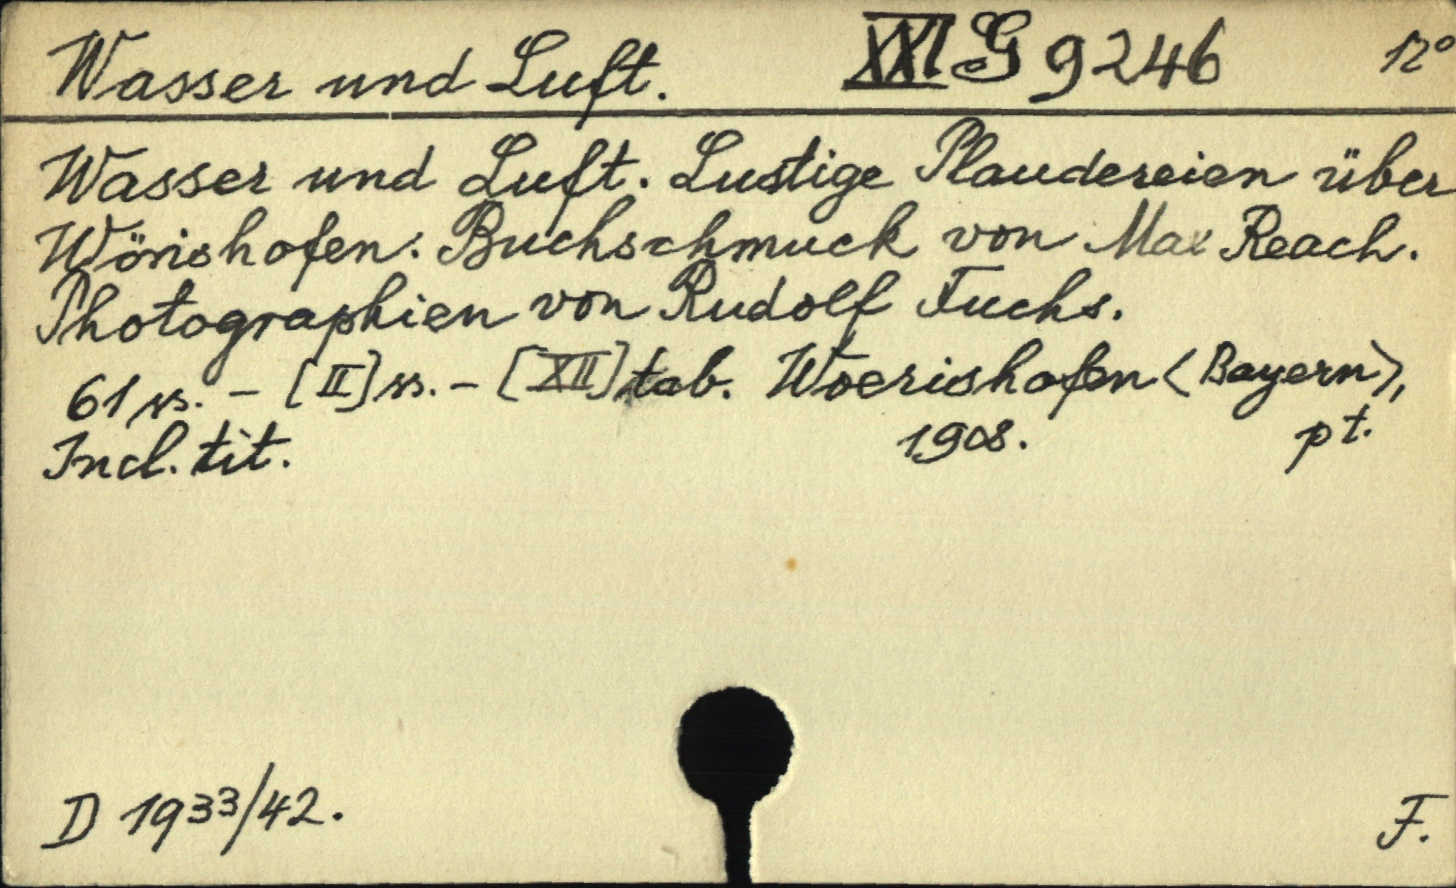 Wasser und Luft. XXI G 9246 12°
Wasser und Luft. Lustige Plaudereien über
Wörishofen. Buchschmuck von Max Reach.
Photographien von Rudolf Fuchs.
61 ss. – [II] ss. – [XII] tab. Woerishofen <Bayern>,
Incl. tit. 1908. pt.
D 1933/42. F.